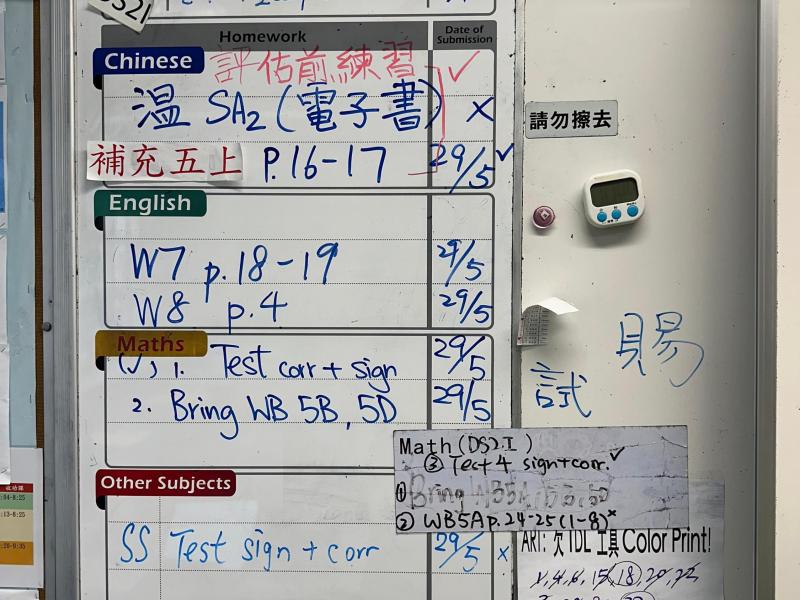 DS21
Homework
Date of Submission
Chinese
評估前練習 ✓
溫 SA2 (電子書) x
補充五上 P.16-17 29/5 ✓
English
W7 p.18-19 29/5
W8 p.4 29/5
Maths
(✓) 1. Test corr + sign 29/5
2. Bring WB 5B, 5D 29/5
Other Subjects
SS Test sign + corr 29/5 x
請勿擦去
賜
試
Math (DS2I)
③ Test 4 sign + corr. ✓
① Bring WB5A, 5B, 5D
② WB5A p.24-25 (1-8) x
ART: 欠 IDL 工具 Color Print!
15, 18,